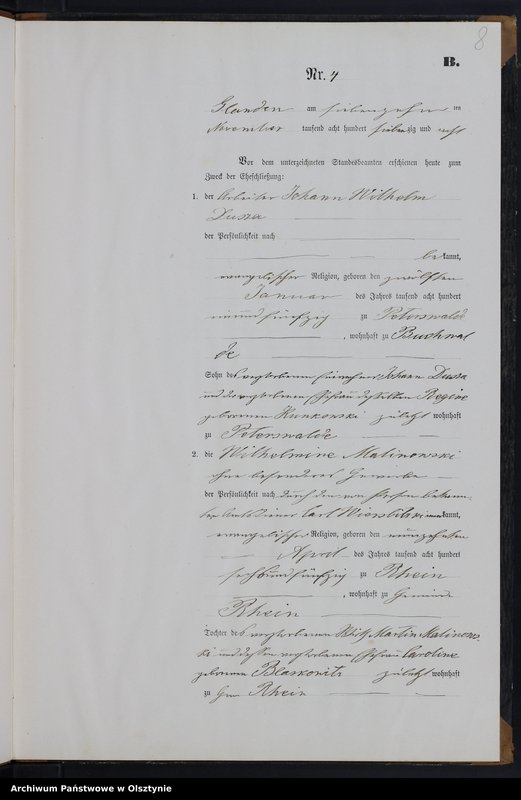 8
B.
Nr. 4
Glanden am siebenzehn ten
November tausend acht hundert siebenzig und acht
Vor dem unterzeichneten Standesbeamten erschienen heute zum
Zweck der Eheschließung:
1. der Arbeiter Johann Wilhelm
Dusza
der Persönlichkeit nach
bekannt,
evangelischer Religion, geboren den zwölften
Januar des Jahres tausend acht hundert
fünfzig zu Peterswalde
, wohnhaft zu Buchwal
de
Sohn des verstorbenen Johann Dusza
und verstorbenen Ehefrau desselben Regine
geborenen Kunkowski zuletzt wohnhaft
zu Peterswalde
2. die Wilhelmine Malinowski
ohne besonderes Gewerbe
der Persönlichkeit nach durch den von Person bekann
ten Amtsdiener Carl aner kannt,
evangelischer Religion, geboren den neunzehnten
April des Jahres tausend acht hundert
sechsundfünfzig zu Rhein
, wohnhaft zu Gemeinde
Rhein
Tochter des verstorbenen Martin Malinows-
ki und dessen verstorbenen Ehefrau Caroline
geborenen Blaskowitz zuletzt wohnhaft
zu Gem. Rhein
Archiwum Państwowe w Olsztynie